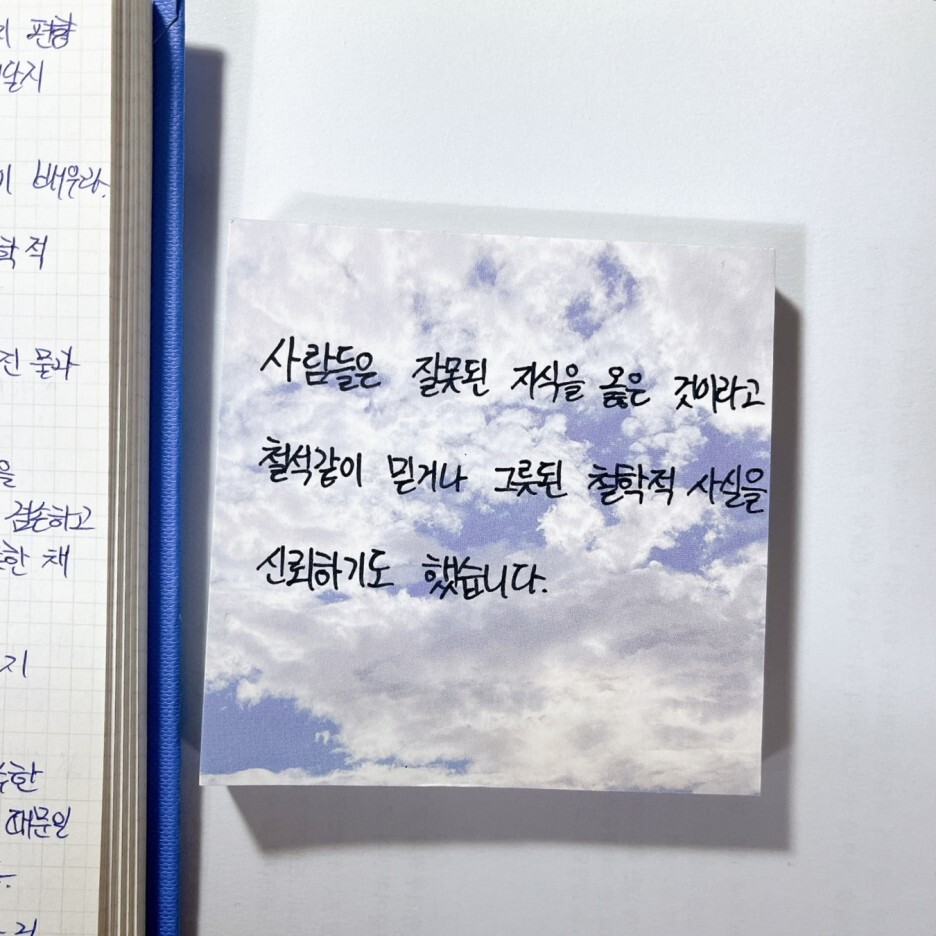 편향
배우라.
학적
진 물과
을
겸손하고
한 채
지
때문일
사람들은 잘못된 지식을 옳은 것이라고
철석같이 믿거나 그릇된 철학적 사실을
신뢰하기도 했습니다.